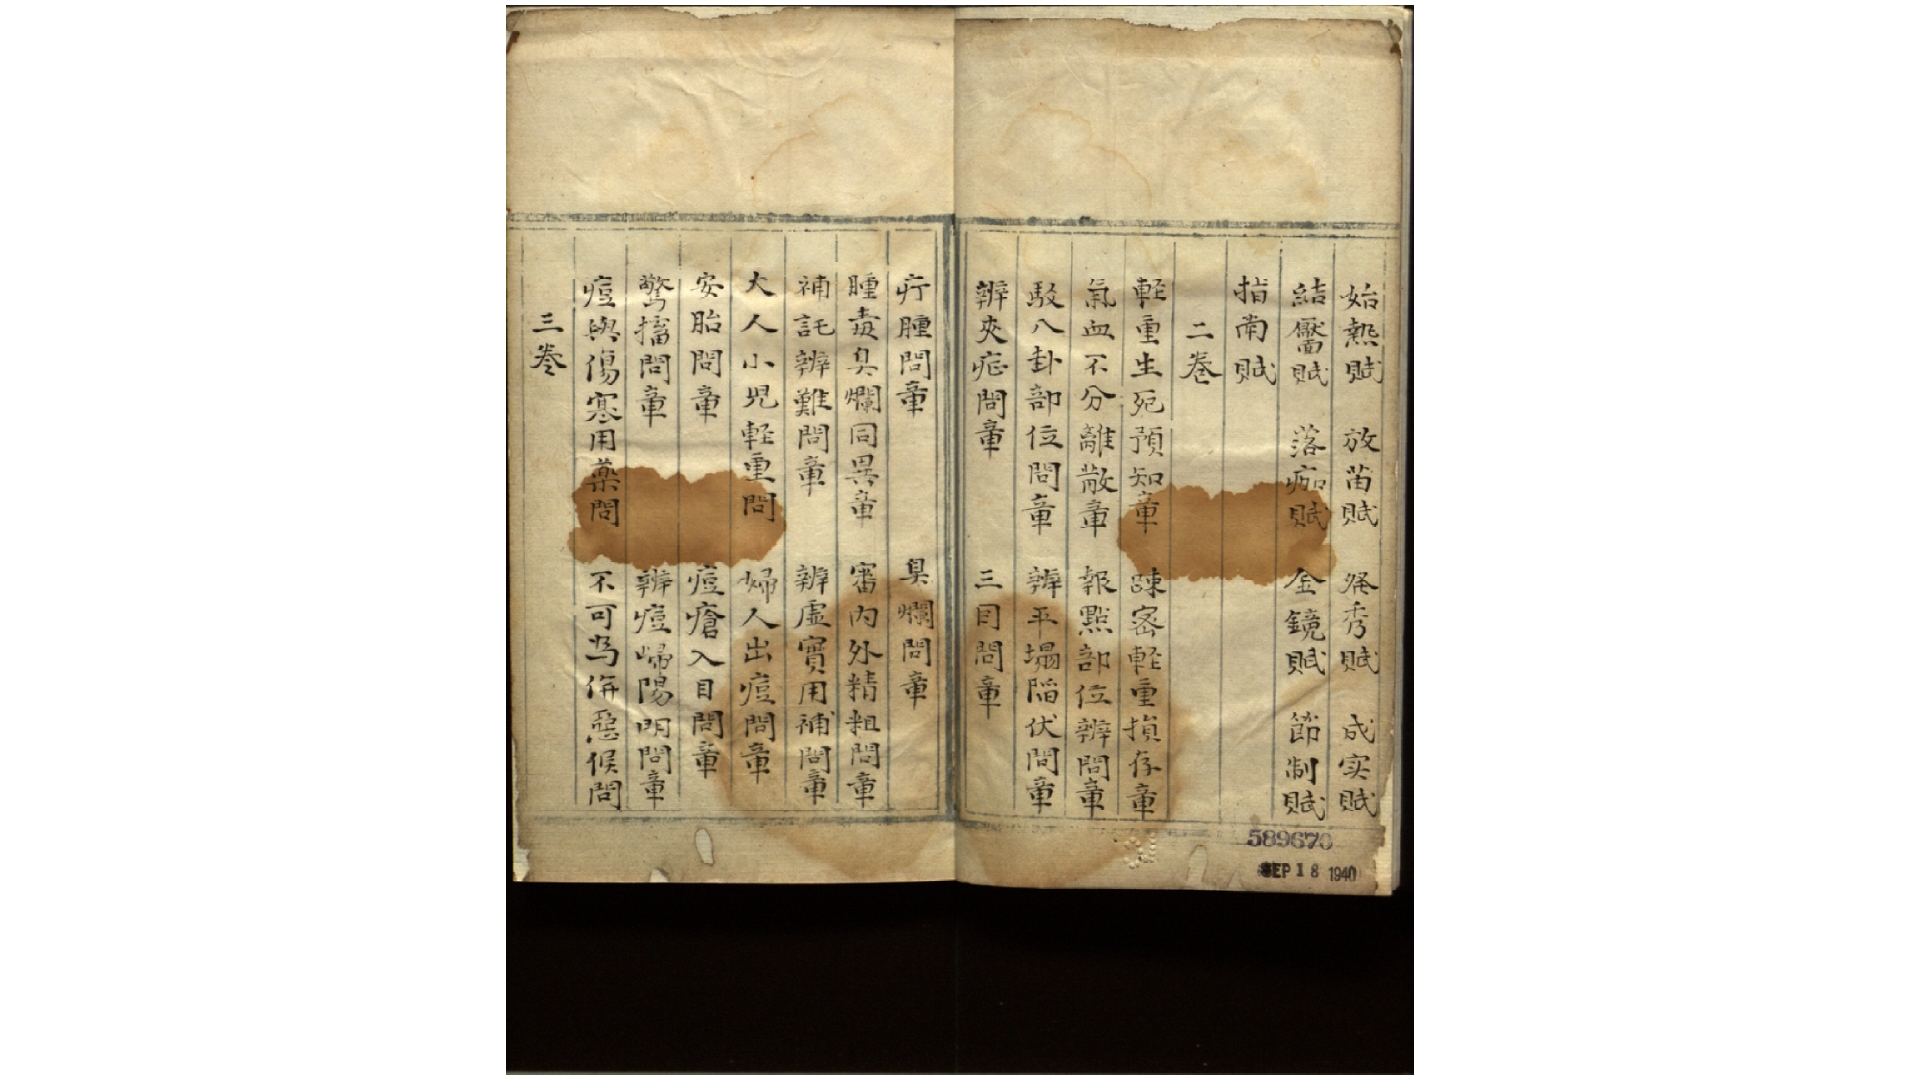 始熱賦　放苗賦　發秀賦　成实賦
結靨賦　落痂賦　金鏡賦　節制賦
指南賦
二巻
軽重生死預知章　踈宻軽重損存章
氣血不分離散章　報點部位辨問章
八卦部位問章　辨平塌陥伏問章
辨夾症問章　三目問章
疔腫問章　臭爛問章
腫毒臭爛同異章　審内外精粗問章
補託辨難問章　辨虚實用補問章
大人小児軽重問　婦人出痘問章
安胎問章　痘瘡入目問章
驚搐問章　辨痘歸陽明問章
痘與傷寒用藥問　不可為併惡候問
三巻
589670
SEP 18 1940